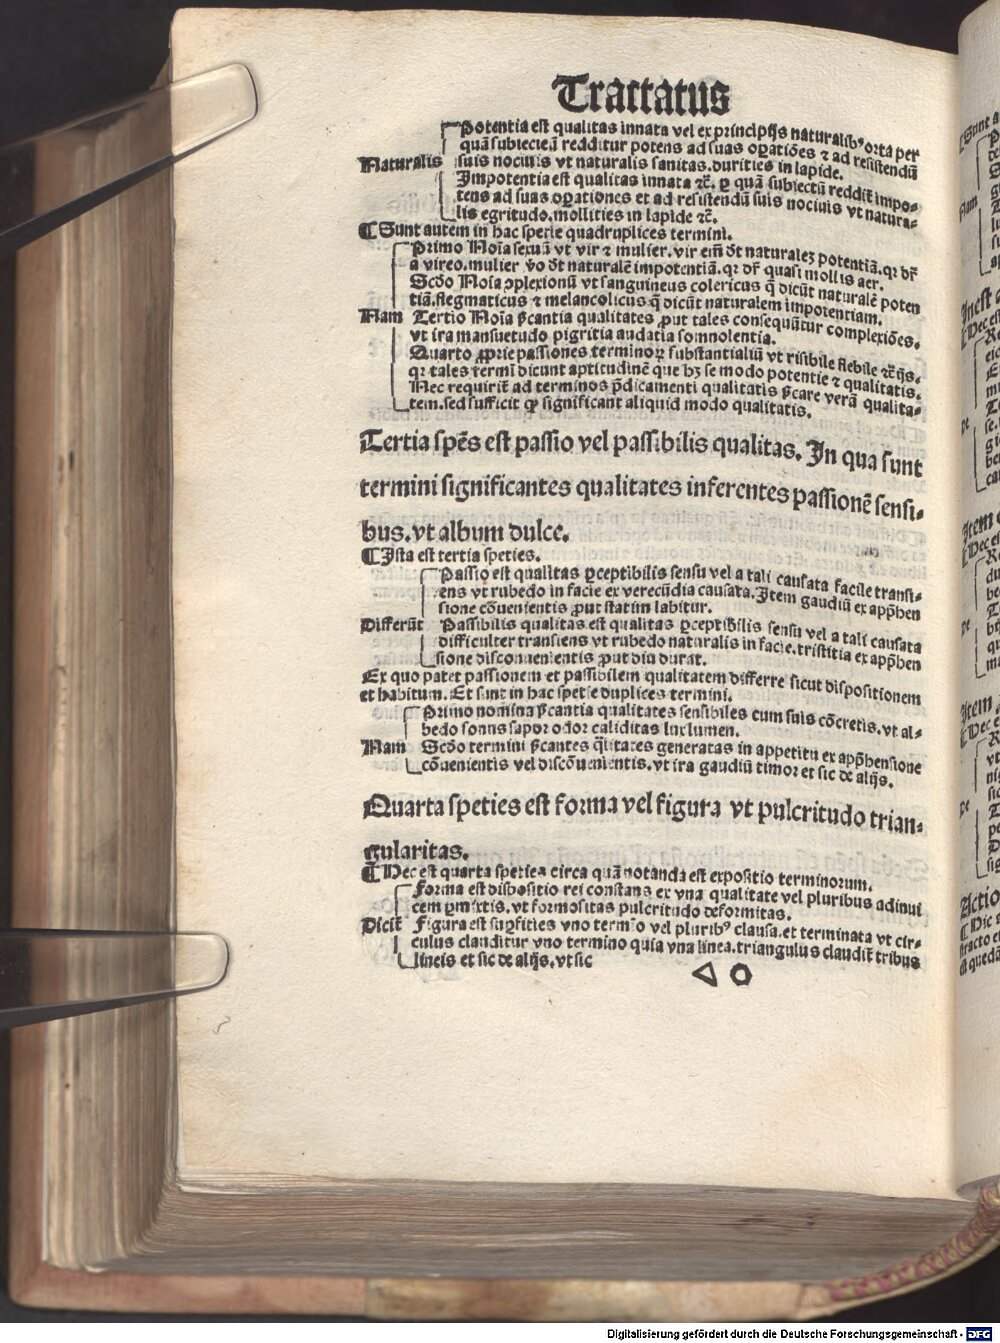 Tractatus
Potentia est qualitas innata vel ex principijs naturalibꝰ orta per
quā subiectū redditur potens ad suas oꝑatiōes ⁊ ad resistendū
Naturalis suis nociuis vt naturalis sanitas. durities in lapide.
Impotentia est qualitas innata ⁊c̄. ꝑ quā subiectū reddit̄ impo-
tens ad suas oꝑationes et ad resistendū suis nociuis vt natura-
lis egritudo. mollities in lapide ⁊c̄.
¶ Sunt autem in hac spetie quadruplices termini.
Primo Noīa sexuū vt vir ⁊ mulier. vir em̄ dr̄t naturalez potentiā. qꝛ dr̄
a vireo. mulier v̄o dr̄t naturalē impotentiā. qꝛ dr̄ quasi mollis aer.
Scd̄o Noīa ꝯplexionū vt sanguineus colericus q̄ dicūt naturalē poten
tiā. flegmaticus ⁊ melancolicus q̄ dicūt naturalem impotentiam.
Nam Tertio Noīa ꝑcantia qualitates ꝓut tales consequūtur complexiōes.
vt ira mansuetudo pigritia audatia somnolentia.
Quarto ꝓprie passiones terminoꝝ substantialiū vt risibile flebile ⁊c̄ ijs.
qꝛ tales term̄i dicunt aptitudinē que hꝫ se modo potentie ⁊ qualitatis.
Nec requirit̄ ad terminos p̄dicamenti qualitatis ꝑcare verā qualita-
tem. sed sufficit ꝙ significant aliquid modo qualitatis.
Tertia spēs est passio vel passibilis qualitas. In qua sunt
termini significantes qualitates inferentes passionē sensi-
bus. vt album dulce.
¶ Ista est tertia speties.
Passio est qualitas ꝑceptibilis sensu vel a tali causata facile transi-
ens vt rubedo in facie ex verecūdia causata. Item gaudiū ex app̄hen
sione cōuenientis ꝓut statim labitur.
Differūt Passibilis qualitas est qualitas ꝑceptibilis sensu vel a tali causata
difficulter transiens vt rubedo naturalis in facie. tristitia ex app̄hen
sione disconuenientis ꝓut diu durat.
Ex quo patet passionem et passibilem qualitatem differre sicut dispositionem
et habitum. Et sunt in hac spetie duplices termini.
Primo nomina ꝑcantia qualitates sensibiles cum suis cōcretis. vt al-
bedo sonus sapor odor caliditas lux lumen.
Nam Scd̄o termini ꝑcantes q̄litates generatas in appetitu ex app̄hensione
cōuenientis vel discōuenientis. vt ira gaudiū timor et sic de alijs.
Quarta speties est forma vel figura vt pulcritudo trian-
gularitas.
¶ Hec est quarta speties circa quā notanda est expositio terminorum.
Forma est dispositio rei constans ex vna qualitate vel pluribus adinui
cem ꝑmixtis. vt formositas pulcritudo deformitas.
Dicit̄ Figura est suꝑfities vno termīo vel pluribꝰ clausa. et terminata vt cir-
culus clauditur vno termino quia vna linea. triangulus claudit̄ tribus
lineis et sic de alijs. vt sic
Digitalisierung gefördert durch die Deutsche Forschungsgemeinschaft - DFG